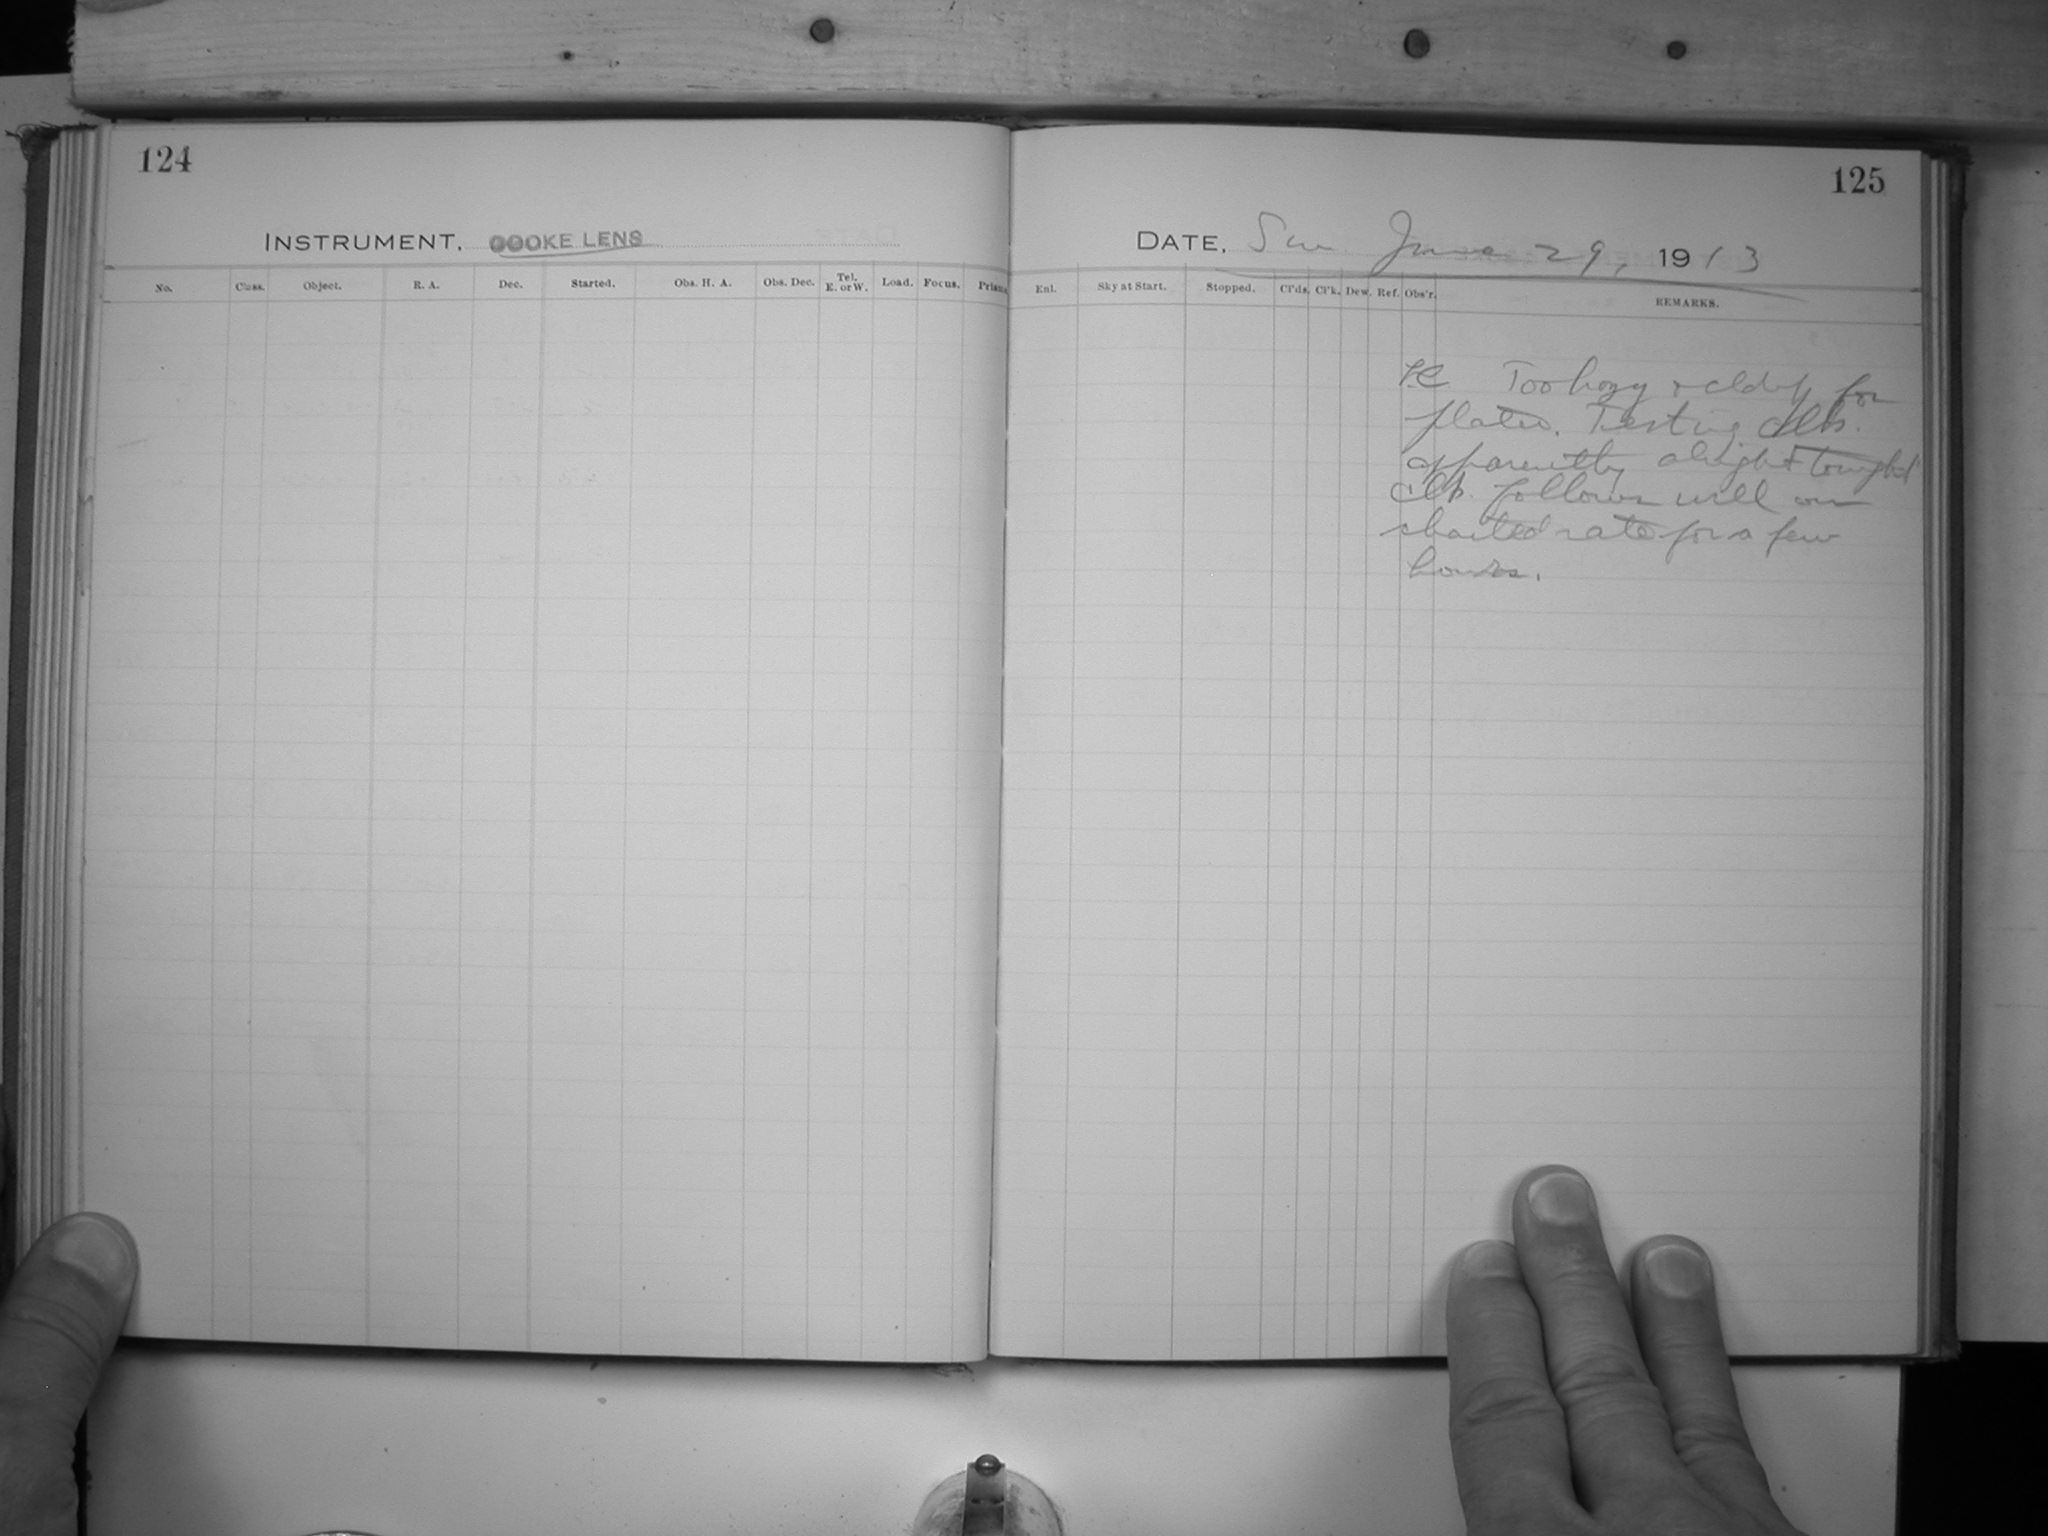 124
INSTRUMENT, COOKE LENS
No. Class. Object. R. A. Dec. Started. Obs. H. A. Obs. Dec. Tel. E. or W. Load. Focus. Prisms
125
DATE, Sun June 29, 1913
Enl. Sky at Start. Stopped. Cl'ds. Cl'k. Dew. Ref. Obs'r. REMARKS.
Too hazy + cldy for
plates. Testing clk.
apparently alright tonight
clk. follows well on
rate for a few
hours.